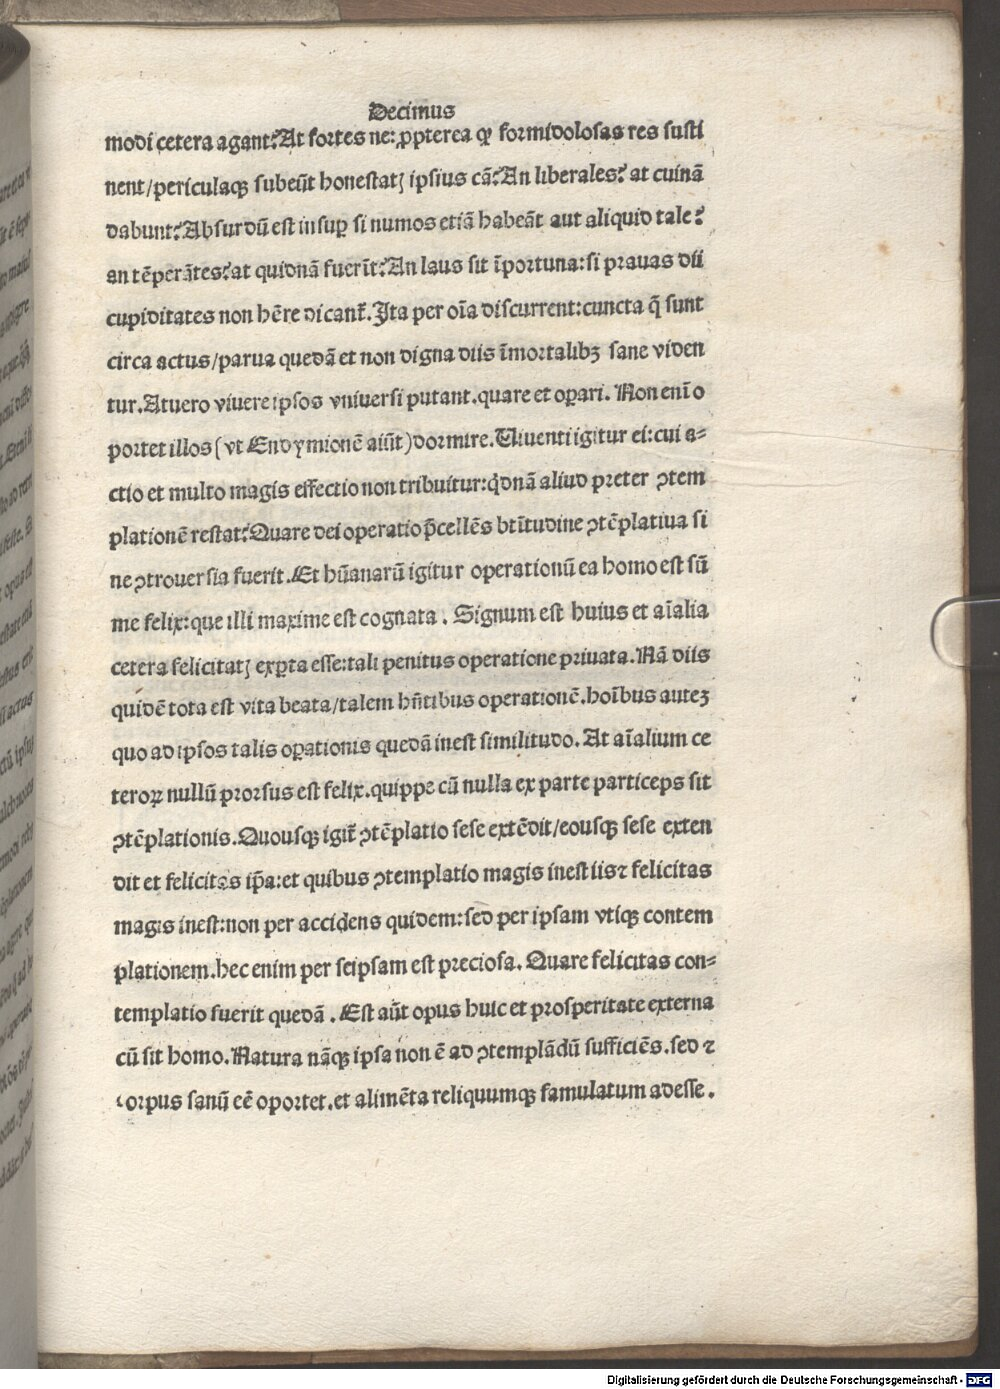 Decimus
modi cetera agant? At fortes ne: ꝓpterea qꝫ formidolosas res susti
nent/periculaqꝫ subeūt honestatꝭ ipsius cā? An liberales? at cuinā
dabunt? Absurdū est insuꝑ si numos etiā habeāt aut aliquid tale?
an tēperātes? at quidnā fuerīt? An laus sit īportuna: si prauas dii
cupiditates non hēre dicant̄. Ita per oīa discurrent: cuncta q̄ sunt
circa actus/parua quedā et non digna diis īmortalibꝫ sane viden
tur. Atuero viuere ipsos vniuersi putant. quare et oꝑari. Non enī o
portet illos (vt Endymionē aiūt) dormire. Uiuenti igitur ei: cui a⸗
ctio et multo magis effectio non tribuitur: qͥdnā aliud preter ꝯtem
plationē restat? Quare dei operatio p̄cellēs btītudine ꝯtēplatiua si
ne ꝯtrouersia fuerit. Et hūanarū igitur operationū ea homo est sū
me felix: que illi maxime est cognata. Signum est huius et aīalia
cetera felicitatꝭ exꝑta esse: tali penitus operatione priuata. Nā diis
quidē tota est vita beata/talem hn̄tibus operationē. hoībus autez
quo ad ipsos talis oꝑationis quedā inest similitudo. At aīalium ce
teroꝝ nullū prorsus est felix. quippe cū nulla ex parte particeps sit
ꝯtēplationis. Quousqꝫ igit̄ ꝯtēplatio sese extēdit/eousqꝫ sese exten
dit et felicitas ip̄a: et quibus ꝯtemplatio magis inest iis ⁊ felicitas
magis inest: non per accidens quidem: sed per ipsam vtiqꝫ contem
plationem. hec enim per seipsam est preciosa. Quare felicitas con⸗
templatio fuerit quedā. Est aūt opus huic et prosperitate externa
cū sit homo. Natura nāqꝫ ipsa non ē ad ꝯtemplādū sufficiēs. sed ⁊
corpus sanū eē oportet. et alimēta reliquumqꝫ famulatum adesse.
Digitalisierung gefördert durch die Deutsche Forschungsgemeinschaft - DFG